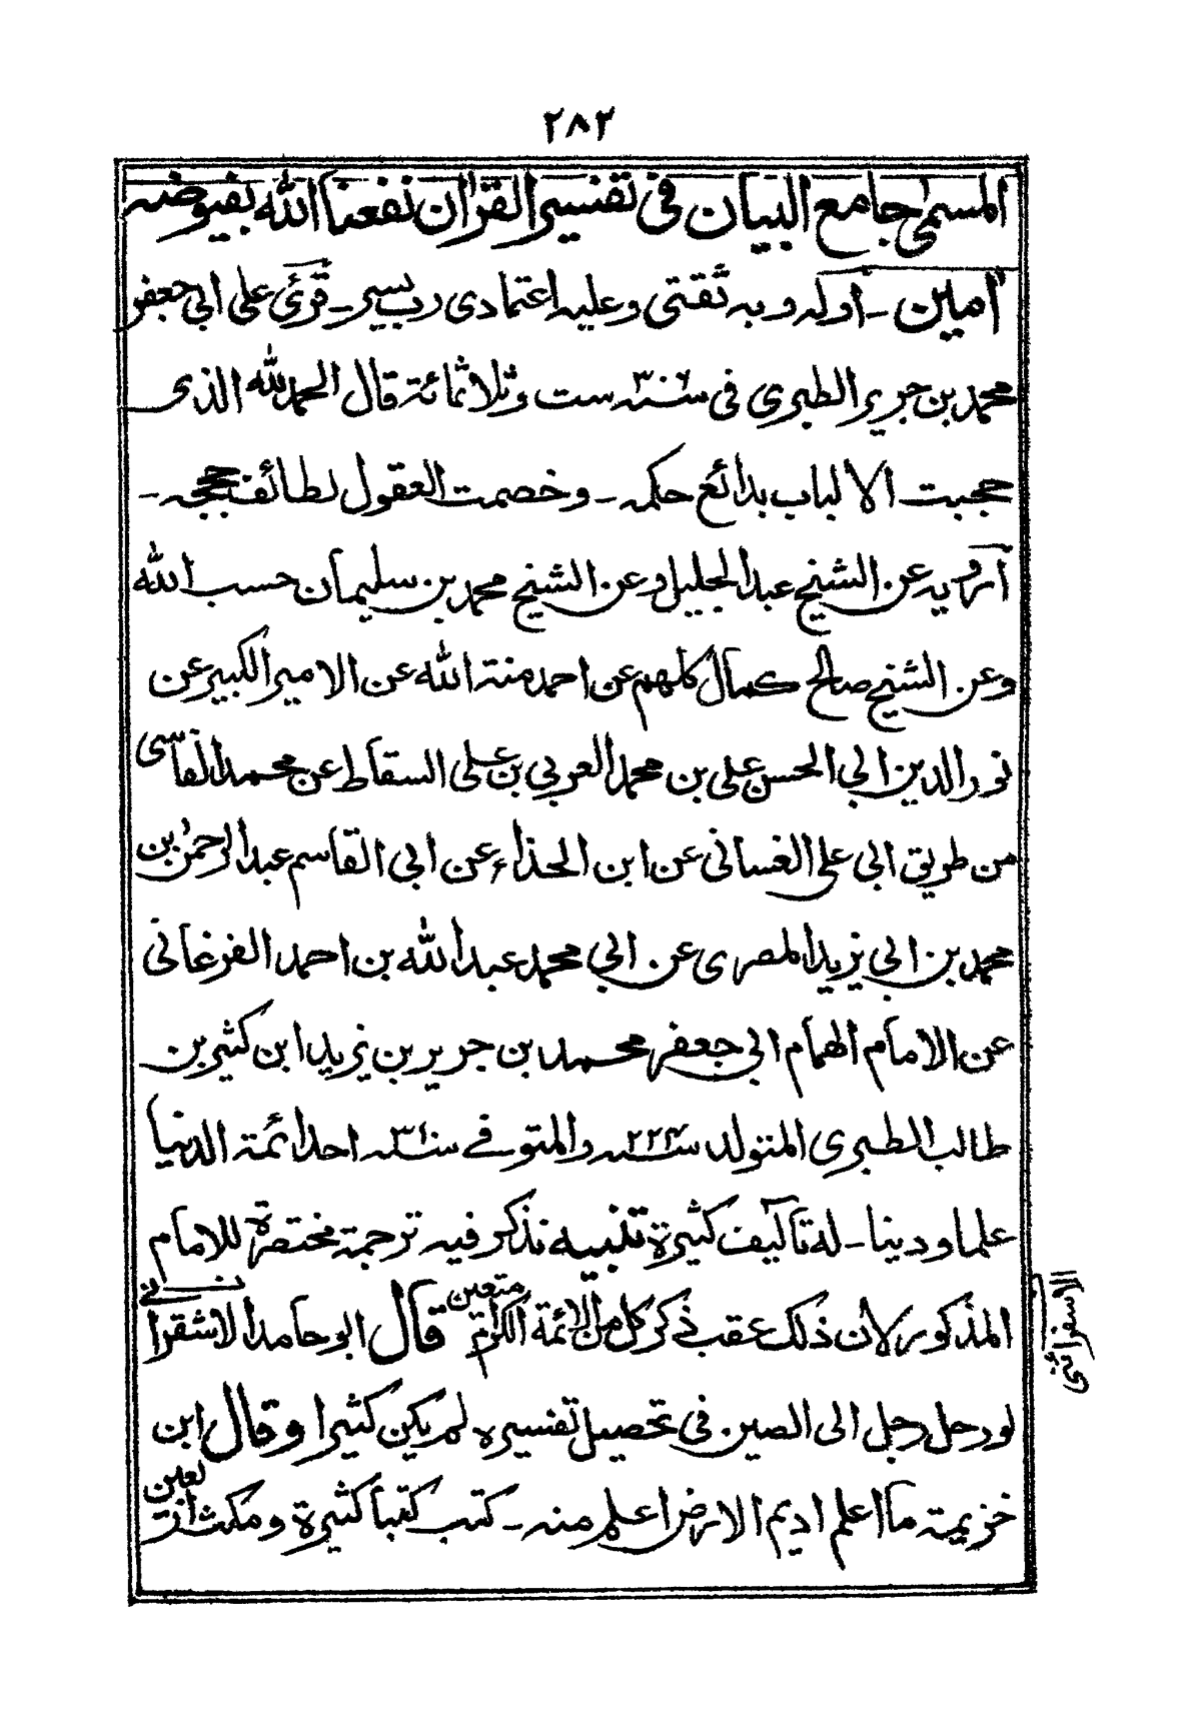 ٢٨٣
المسمى جامع البيان في تفسير القرآن نفعنا الله بفيوضه
امين ـ اوله وبه ثقتي وعليه اعتمادي رب يسر ـ قرئ على ابي جعفر
محمد بن جرير الطبري في سنة ٣٠٦ ست وثلاثمائة قال الحمد لله الذي
حجبت الالباب بدائع حكمه ـ وخصمت العقول لطائف حججه ـ
أرويه عن الشيخ عبد الجليل وعن الشيخ محمد بن سليمان حسب الله
وعن الشيخ صالح كمال كلهم عن احمد منة الله عن الامير الكبير عن
نور الدين ابي الحسن علي بن محمد العربي بن علي السقاط عن محمد الفاسي
من طريق ابي علي الغساني عن ابن الحذاء عن ابي القاسم عبد الرحمن بن
محمد بن ابي يزيد المصري عن ابي محمد عبد الله بن احمد الفرغاني
عن الامام الهمام ابي جعفر محمد بن جرير بن يزيد ابن كثير بن
طالب الطبري المتولد سنة ٢٢٤ والمتوفے سنة ٣١٠ احد ائمة الدنيا
علما ودينا ـ له تآليف كثيرة تنبيه نذكر فيه ترجمة مختصرة للامام
المذكور لان ذلك عقب ذكر كل من الائمة الكرام متعين قال ابو حامد الاشقرانے
الاسفرائني
لو رحل رجل الى الصين في تحصيل تفسيره لم يكن كثيرا وقال ابن
خزيمة ما اعلم اديم الارض اعلم منه ـ كتب كتبا كثيرة ومكث